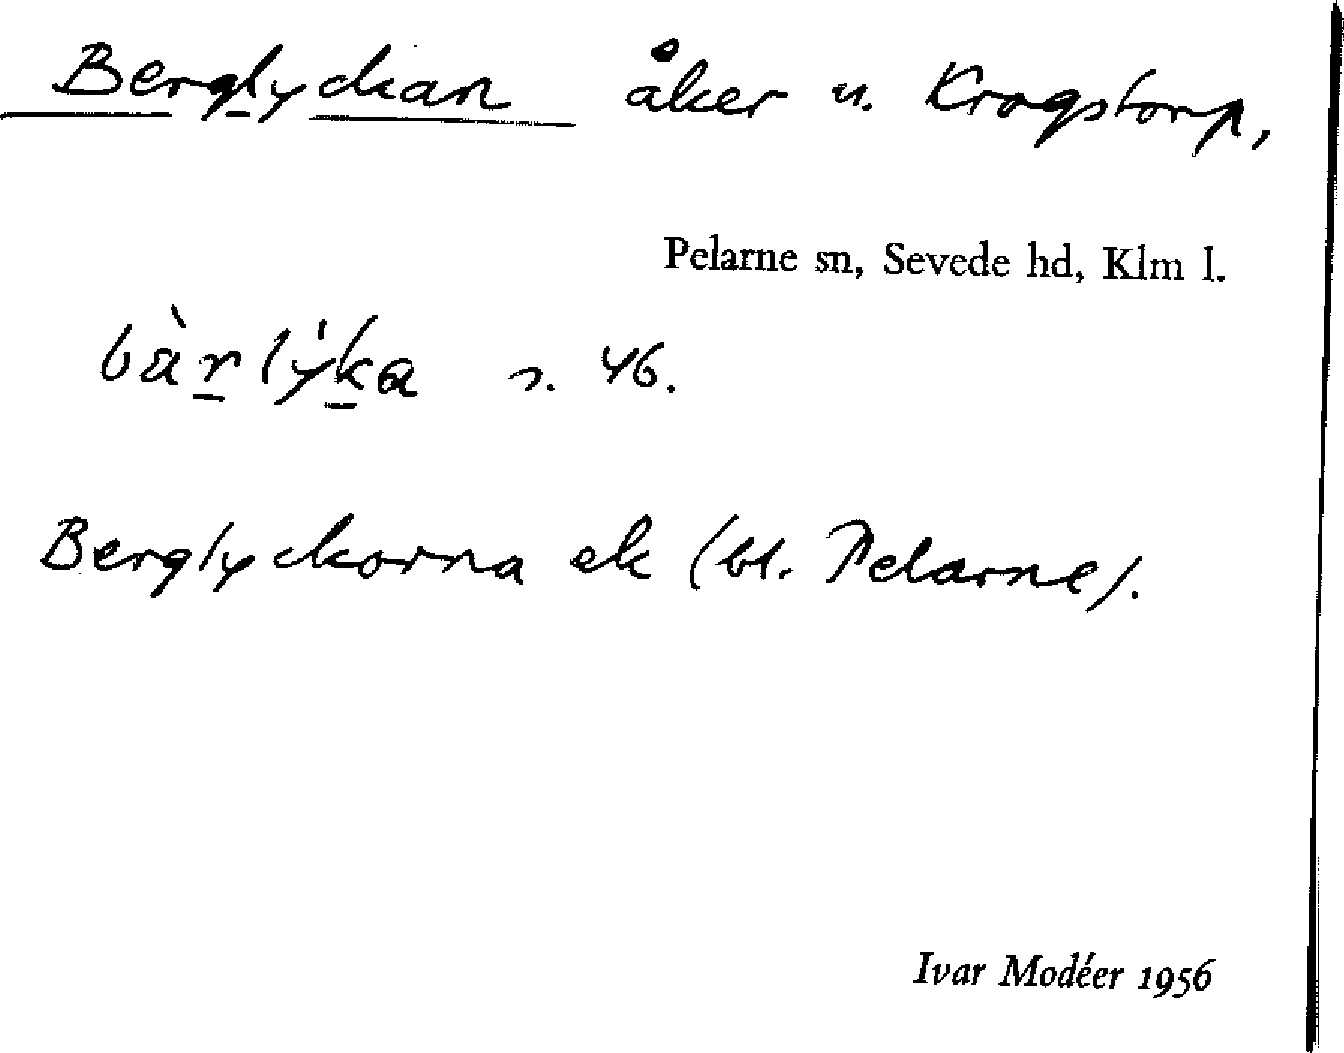 Berglyckan åker u. Krogstorp,
Pelarne sn, Sevede hd, Klm l.
bàrlýka s. 46.
Berglyckorna ek (bl. Pelarne).
Ivar Modéer 1956